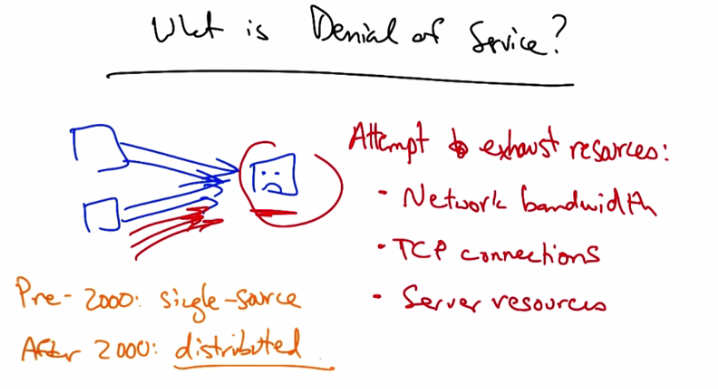 What is Denial of Service?
Attempt to exhaust resources:
• Network bandwidth
• TCP connections
• Server resources
Pre-2000: single-source
After 2000: distributed